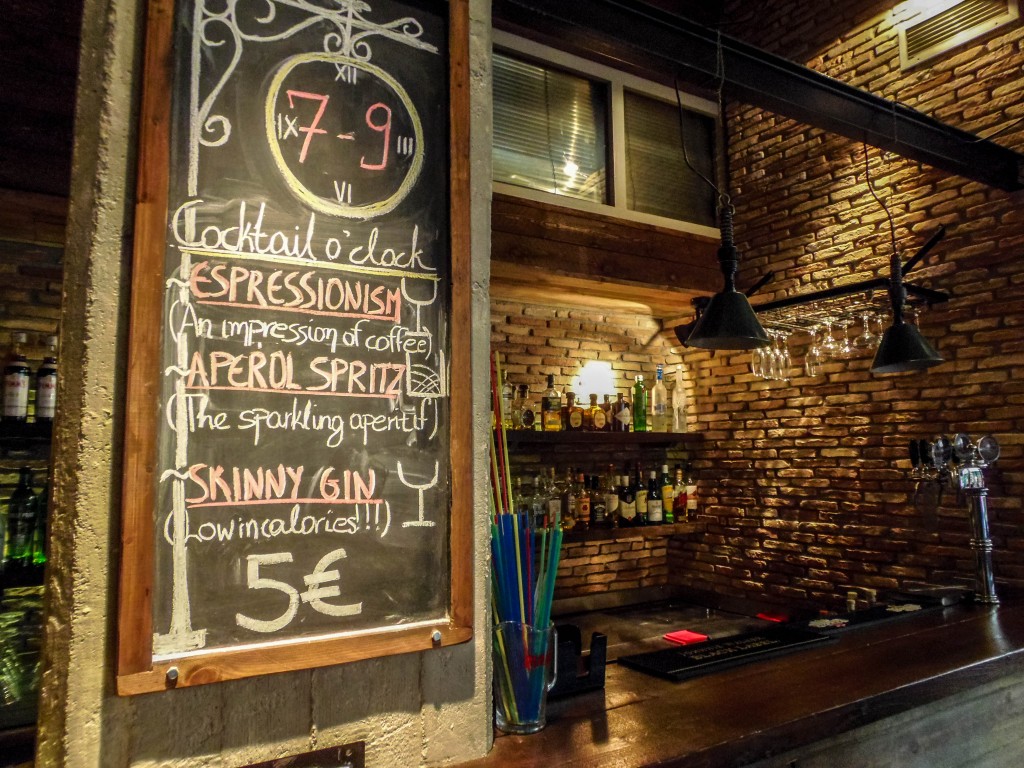 XII
IX 7-9 III
VI
Cocktail o'clock
~ESPRESSIONISM
(An impression of coffee)
~APEROL SPRITZ
(The sparkling aperitif)
~SKINNY GIN
(Low in calories!!!)
5€